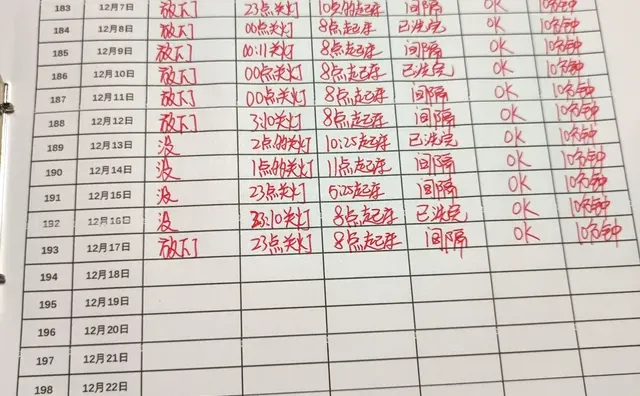 183 12月7日 放下 23点关灯 10点的起床 间隔 OK 10分钟
184 12月8日 放下 00点关灯 8点起床 已洗完 OK 10分钟
185 12月9日 放下 00:11关灯 8点起床 间隔 OK 10分钟
186 12月10日 放下 00点关灯 8点起床 已洗完 OK 10分钟
187 12月11日 放下 00点关灯 8点起床 间隔 OK 10分钟
188 12月12日 放下 3:10关灯 8点起床 间隔 OK 10分钟
189 12月13日 没 2点的关灯 10:25起床 已洗完 OK 10分钟
190 12月14日 没 1点的关灯 11点起床 间隔 OK 10分钟
191 12月15日 没 23点关灯 6:25起床 间隔 OK 10分钟
192 12月16日 没 23:10关灯 8点起床 已洗完 OK 10分钟
193 12月17日 放下 23点关灯 8点起床 间隔 OK 10分钟
194 12月18日
195 12月19日
196 12月20日
197 12月21日
198 12月22日